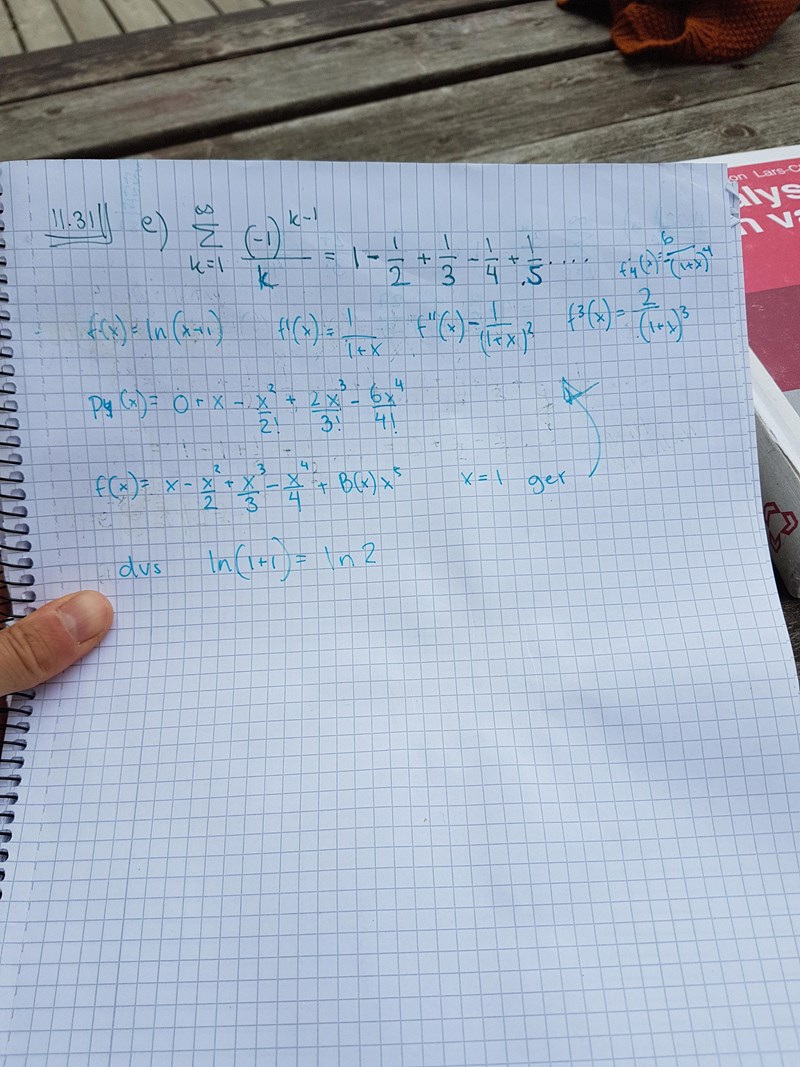 11.31 e) ∑_{k=1}^{∞} (-1)^{k-1}/k = 1 - 1/2 + 1/3 - 1/4 + 1/5 ....
f4(x) = -6/(1+x)^4
f(x) = ln(x+1) f'(x) = 1/(1+x) f''(x) = -1/(1+x)^2 f^3(x) = 2/(1+x)^3
p4(x) = 0 + x - x^2/2! + 2x^3/3! - 6x^4/4!
f(x) = x - x^2/2 + x^3/3 - x^4/4 + B(x)x^5 x=1 ger
dvs ln(1+1) = ln 2
on Lars-C
lys
n va